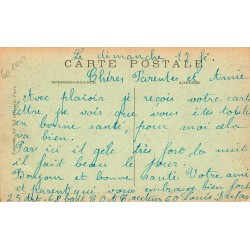 Le dimanche 17 fé.
CARTE POSTALE
CORRESPONDANCE
Chères Parentes et Amie
Avec plaisir je reçois votre carte
lettre, je vois que vous êtes toutes
en bonne santé, pour moi cela
va bien.
Par ici il gèle très fort la nuit
il fait beau le jour.
Bonjour et bonne santé Votre ami
et parent qui vous embrasse bien fort
secteur 60 Louis